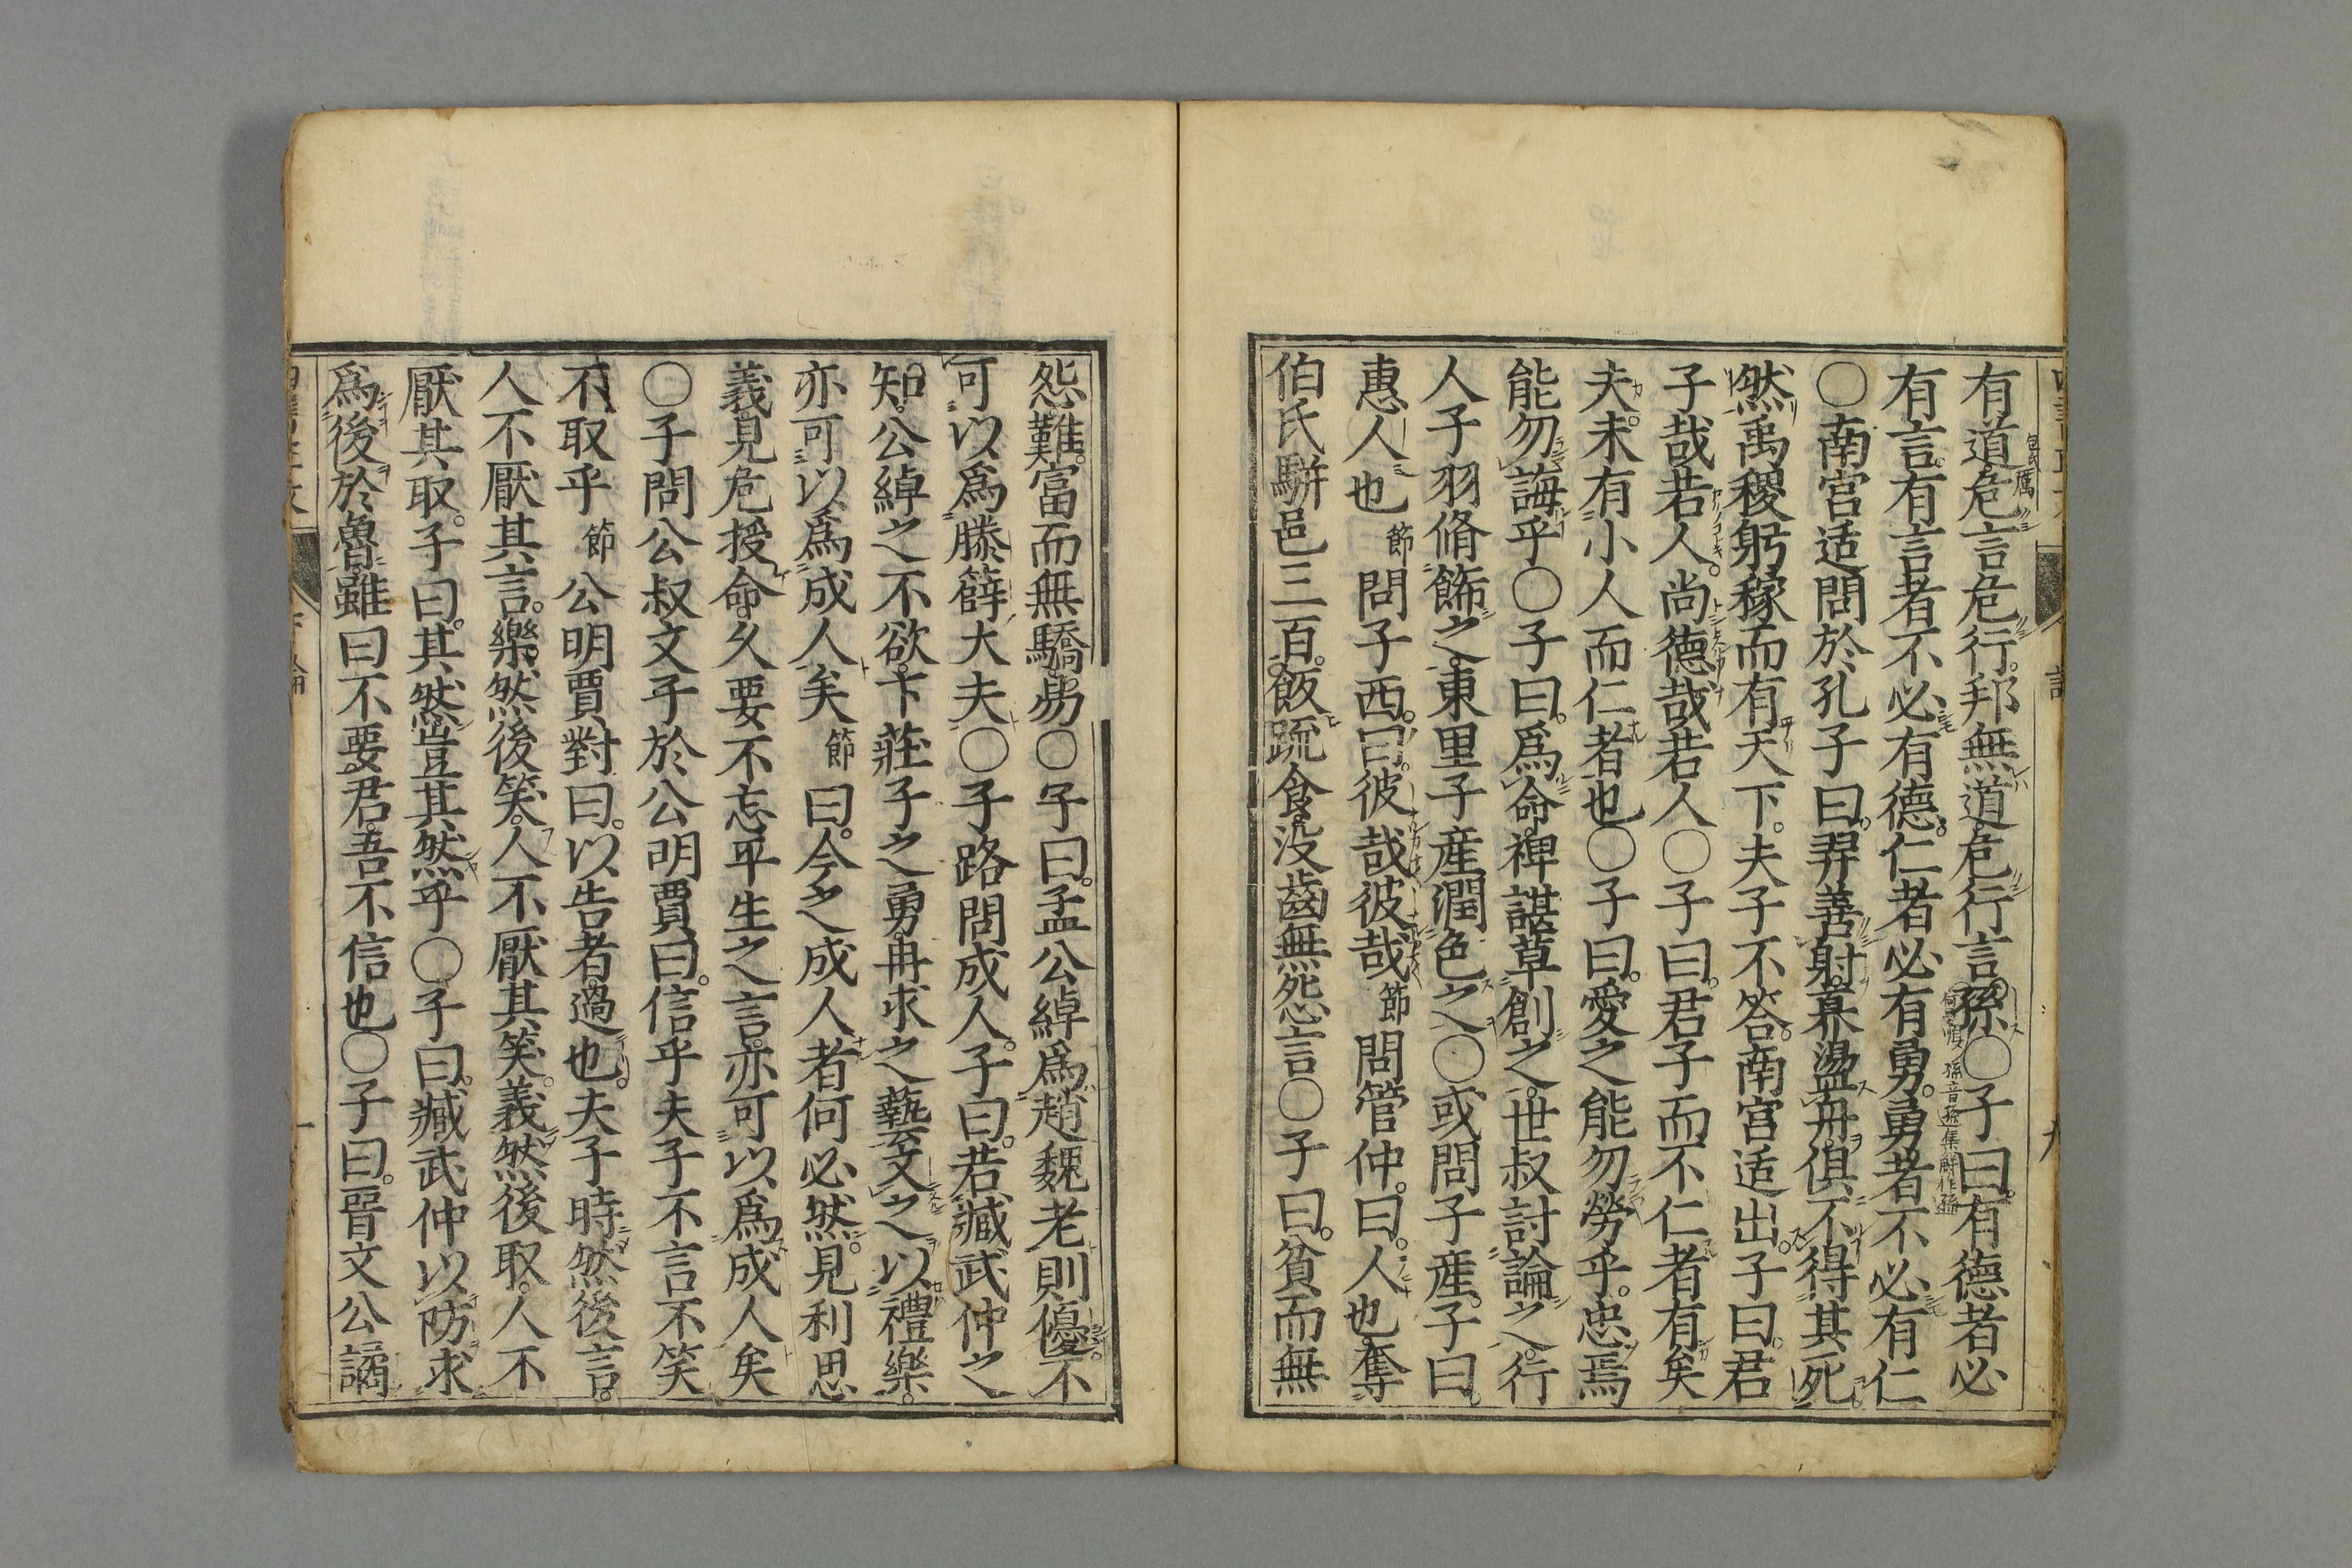 有道危言危行。邦無道危行言孫○子曰。有德者必
有言。有言者不必有德。仁者必有勇。勇者不必有仁
○南宮适問於孔子曰。羿善射。奡盪舟。俱不得其死
然禹稷躬稼而有天下。夫子不答。南宮适出。子曰。君
子哉若人。尚德哉若人○子曰。君子而不仁者有矣
夫。未有小人而仁者也○子曰。愛之能勿勞乎。忠焉
能勿誨乎○子曰。爲命。裨諶草創之。世叔討論之。行
人子羽脩飾之。東里子產潤色之○或問子產。子曰。
惠人也 節 問子西。曰。彼哉彼哉 節 問管仲。曰。人也。奪
伯氏駢邑三百。飯疏食。沒齒無怨言○子曰。貧而無
怨難。富而無驕。易○子曰。孟公綽爲趙魏老則優。不
可以爲滕薛大夫○子路問成人。子曰。若臧武仲之
知。公綽之不欲。卞莊子之勇。冉求之藝。文之以禮樂。
亦可以爲成人矣 節 曰。今之成人者何必然。見利思
義見危授命。久要不忘平生之言。亦可以爲成人矣
○子問公叔文子於公明賈曰。信乎夫子不言不笑
不取乎 節 公明賈對曰。以告者過也。夫子時然後言。
人不厭其言。樂然後笑。人不厭其笑。義然後取。人不
厭其取。子曰。其然豈其然乎○子曰。臧武仲以防求
爲後於魯。雖曰不要君。吾不信也○子曰。晉文公譎